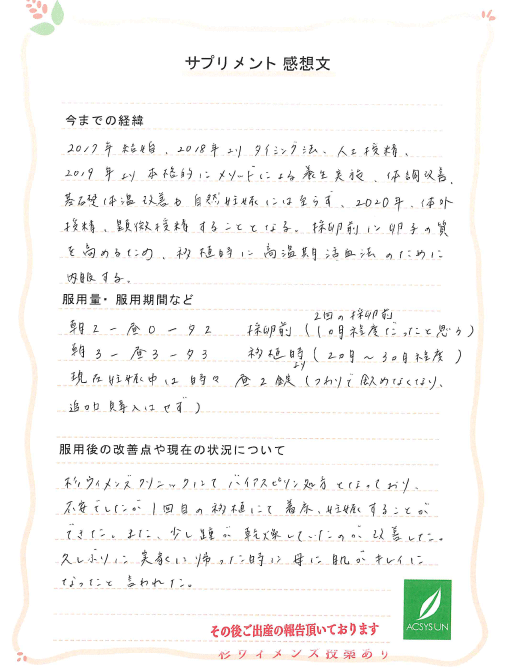 サプリメント 感想文
今までの経緯
2017年 結婚、2018年より タイミング法、人工授精、
2019年より 本格的に メソードによる養生実施、体調改善、
基礎体温改善も自然妊娠には至らず、2020年、体外
授精、顕微授精することとなる。採卵前に卵子の質
を高めるため、移植時に高温期活血法のために
内服する。
服用量・服用期間など
2回の採卵前
朝2ー昼0ー夕2 採卵前（10ヶ月程度だったと思う）
朝3ー昼3ー夕3 移植時より（2ヶ月〜3ヶ月程度）
現在妊娠中は時々 昼2錠（つわりで飲めなくなり、
追加購入はせず）
服用後の改善点や現在の状況について
杉ウィメンズクリニックにて バイアスピリン処方となっており、
不安でしたが1回目の移植にて着床、妊娠することが
できた。また、少し踵が乾燥していたのが改善した。
久しぶりに実家に帰った時に母に肌がキレイに
なったと言われた。
ACSYSUN
その後ご出産の報告頂いております
杉ウイメンズ投薬あり